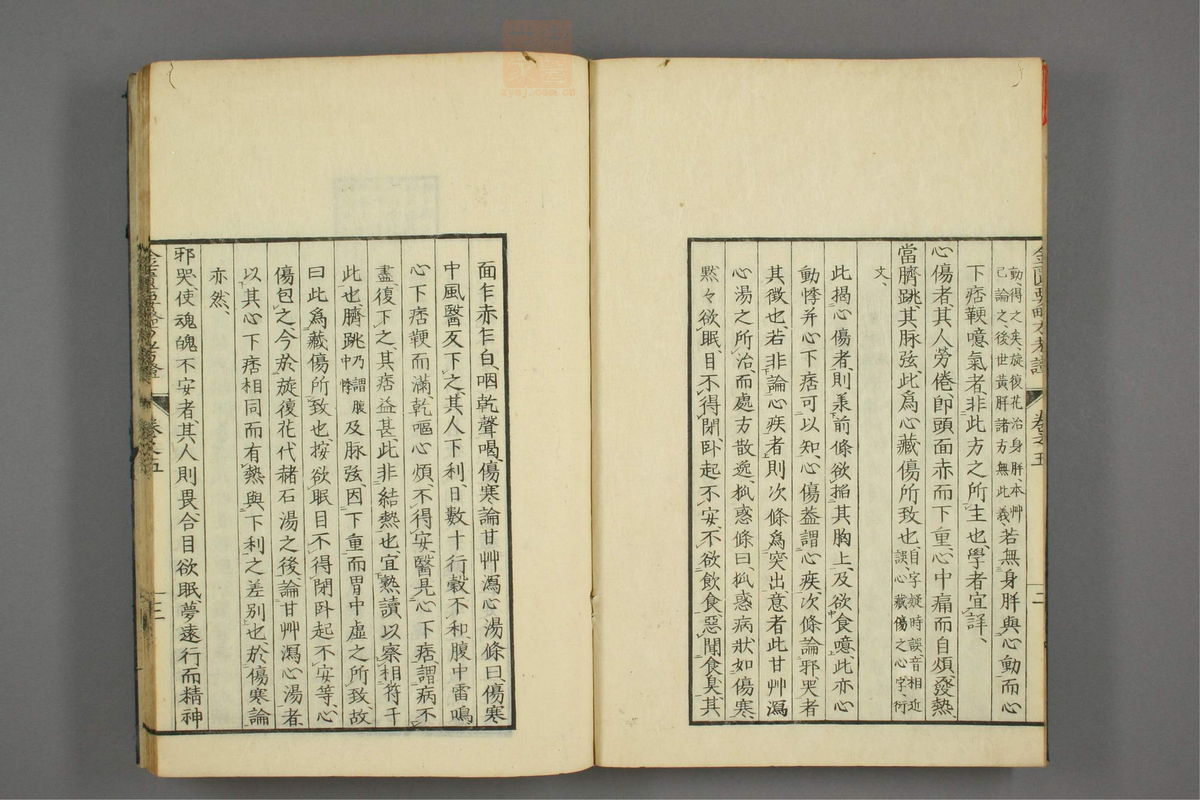 動得之矣、旋復花治身胖、本艸
已論之、後世黃胖諸方無此義、若無身胖與心動而心
下痞鞕噫氣者、非此方之所主也、學者宜詳、
心傷者、其人勞倦、卽頭面赤而下重、心中痛而自煩、發熱、
當臍跳、其脉弦、此爲心藏傷所致也、自字疑時誤、音相近
誤、心藏傷之心字、衍
文、
此揭心傷者、則承前條欲掐其胸上、及欲食噫、此亦心
動悸幷心下痞可以知、心傷蓋謂心疾、次條論邪哭者
其徵也、若非論心疾者、則次條爲突出、意者此甘艸瀉
心湯之所治、而處方散逸、狐惑條曰、狐惑病狀如傷寒、
默々欲眠、目不得閉、臥起不安、不欲飲食、惡聞食臭、其
面乍赤乍白、咽乾聲喝、傷寒論甘艸瀉心湯條曰、傷寒
中風、醫反下之、其人下利、日數十行、穀不和、腹中雷鳴、
心下痞鞕而滿、乾嘔心煩、不得安、醫見心下痞、謂病不
盡、復下之、其痞益甚、此非結熱也、宜熟讀以察相符于
此也、臍跳乃謂腹中悸及脉弦、因下重而胃中虛之所致、故
曰此爲藏傷所致也、按欲眠目不得閉、臥起不安等、心
傷包之、今於旋復花代赭石湯之後、論甘艸瀉心湯者、
以其心下痞相同、而有熱與下利之差別也、於傷寒論
亦然、
邪哭、使魂魄不安者、其人則畏、合目欲眠、夢遠行而精神
金匱要略方考證
卷之五
二
金匱要略方考證
卷之五
三
zysj.com.cn